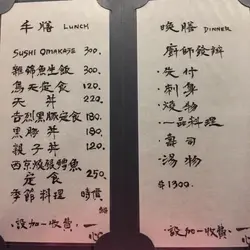 午膳 LUNCH
SUSHI OMAKASE 300.
雜錦魚生飯 300.
烏天定食 120.
天丼 220.
吉烈黑豚定食 180.
黑豚丼 180.
親子丼 120.
西京燒銀鱈魚
定食 250.
季節料理 時價
設加一收費
晚膳 DINNER
廚師發辦
·先付
·刺身
·燒物
·一品料理
·壽司
·湯物
$1300.
·設加一收費·